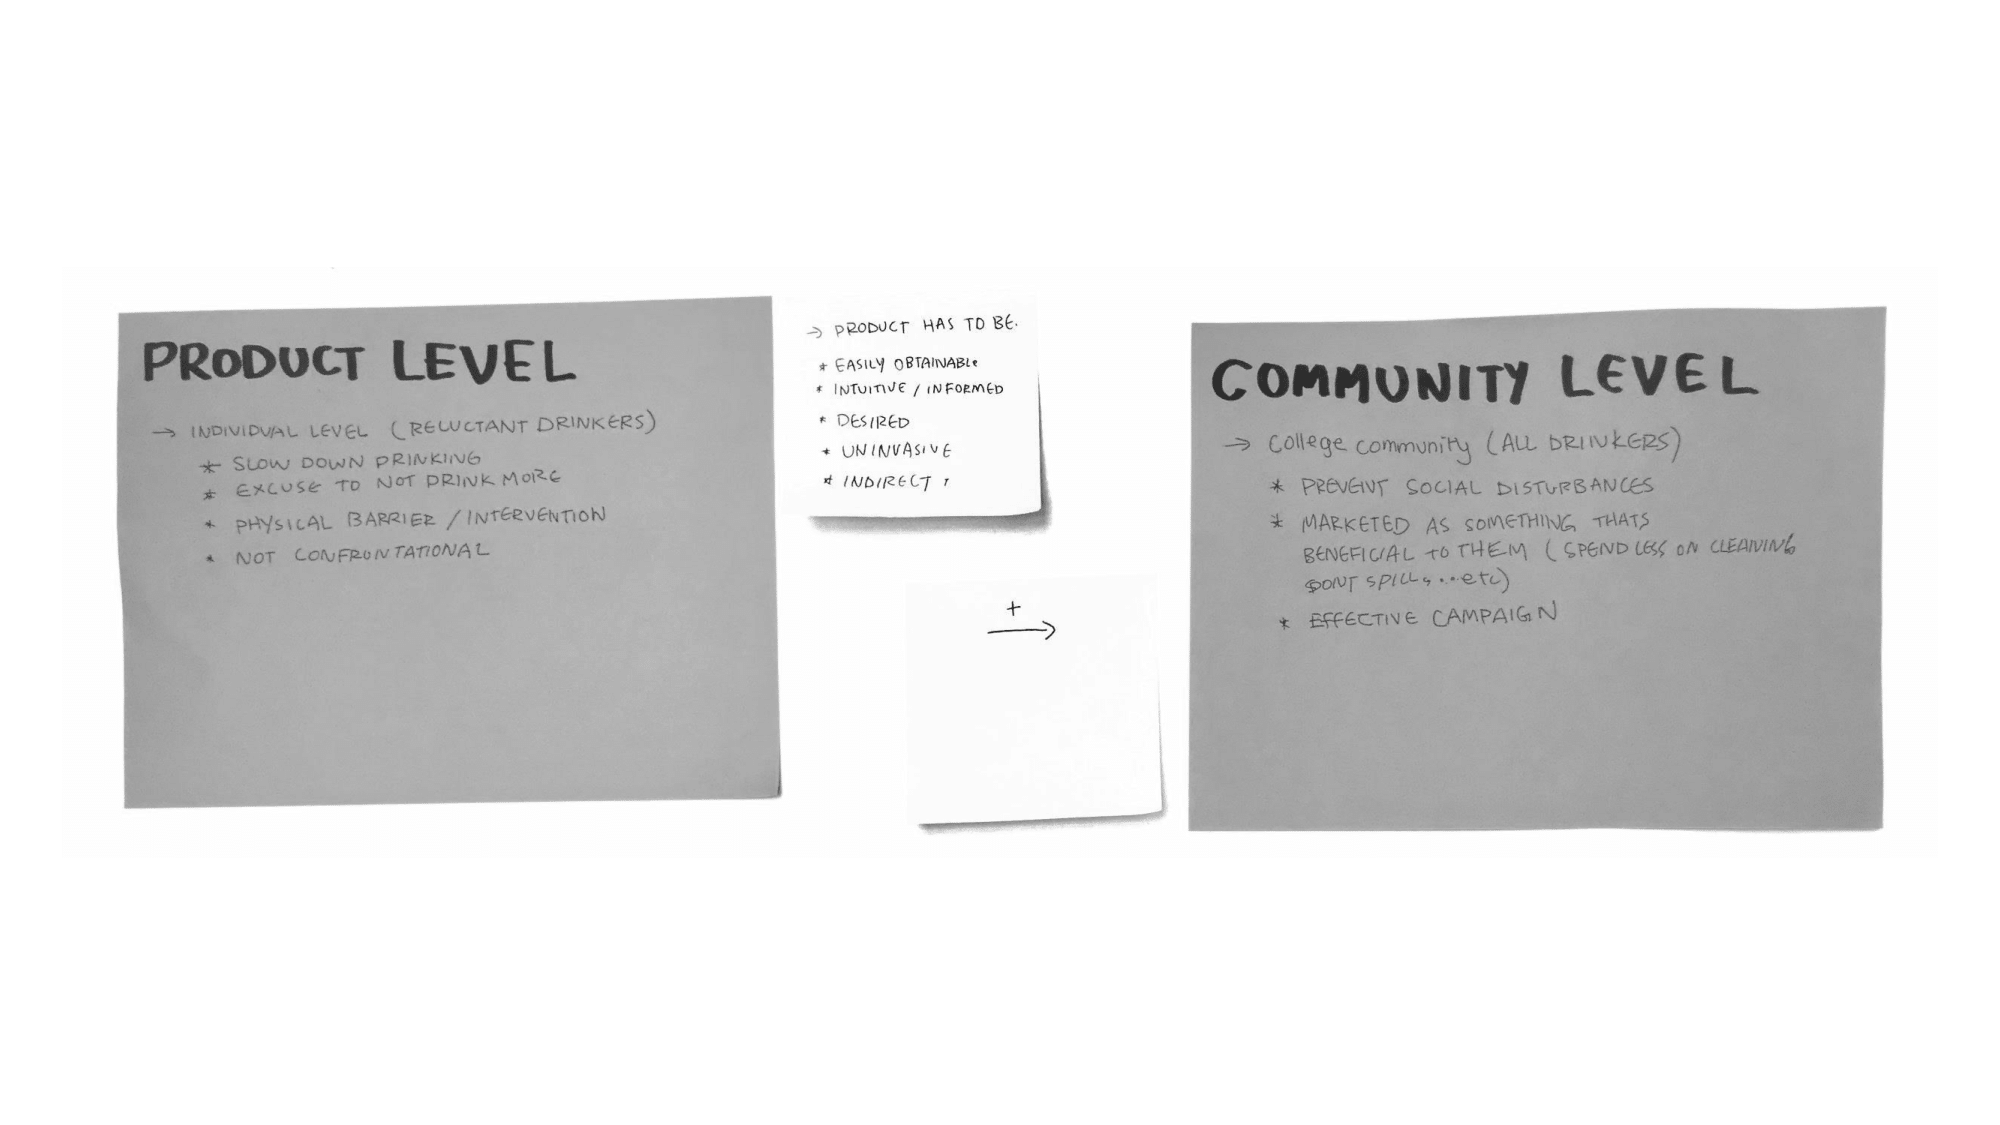 PRODUCT LEVEL
→ INDIVIDUAL LEVEL (RELUCTANT DRINKERS)
* SLOW DOWN DRINKING
* EXCUSE TO NOT DRINK MORE
* PHYSICAL BARRIER / INTERVENTION
* NOT CONFRONTATIONAL
→ PRODUCT HAS TO BE.
* EASILY OBTAINABLE
* INTUITIVE / INFORMED
* DESIRED
* UNINVASIVE
* INDIRECT
+
→
COMMUNITY LEVEL
→ College community (ALL DRINKERS)
* PREVENT SOCIAL DISTURBANCES
* MARKETED AS SOMETHING THATS
BENEFICIAL TO THEM (SPEND LESS ON CLEANING
DONT SPILL, ...etc)
* EFFECTIVE CAMPAIGN